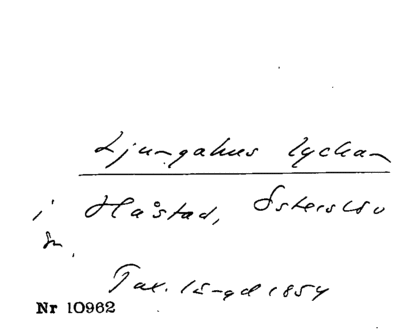 Ljungahus lyckan
i Håstad, Österslöv
sn.
Tax. längd 1854
Nr 10962